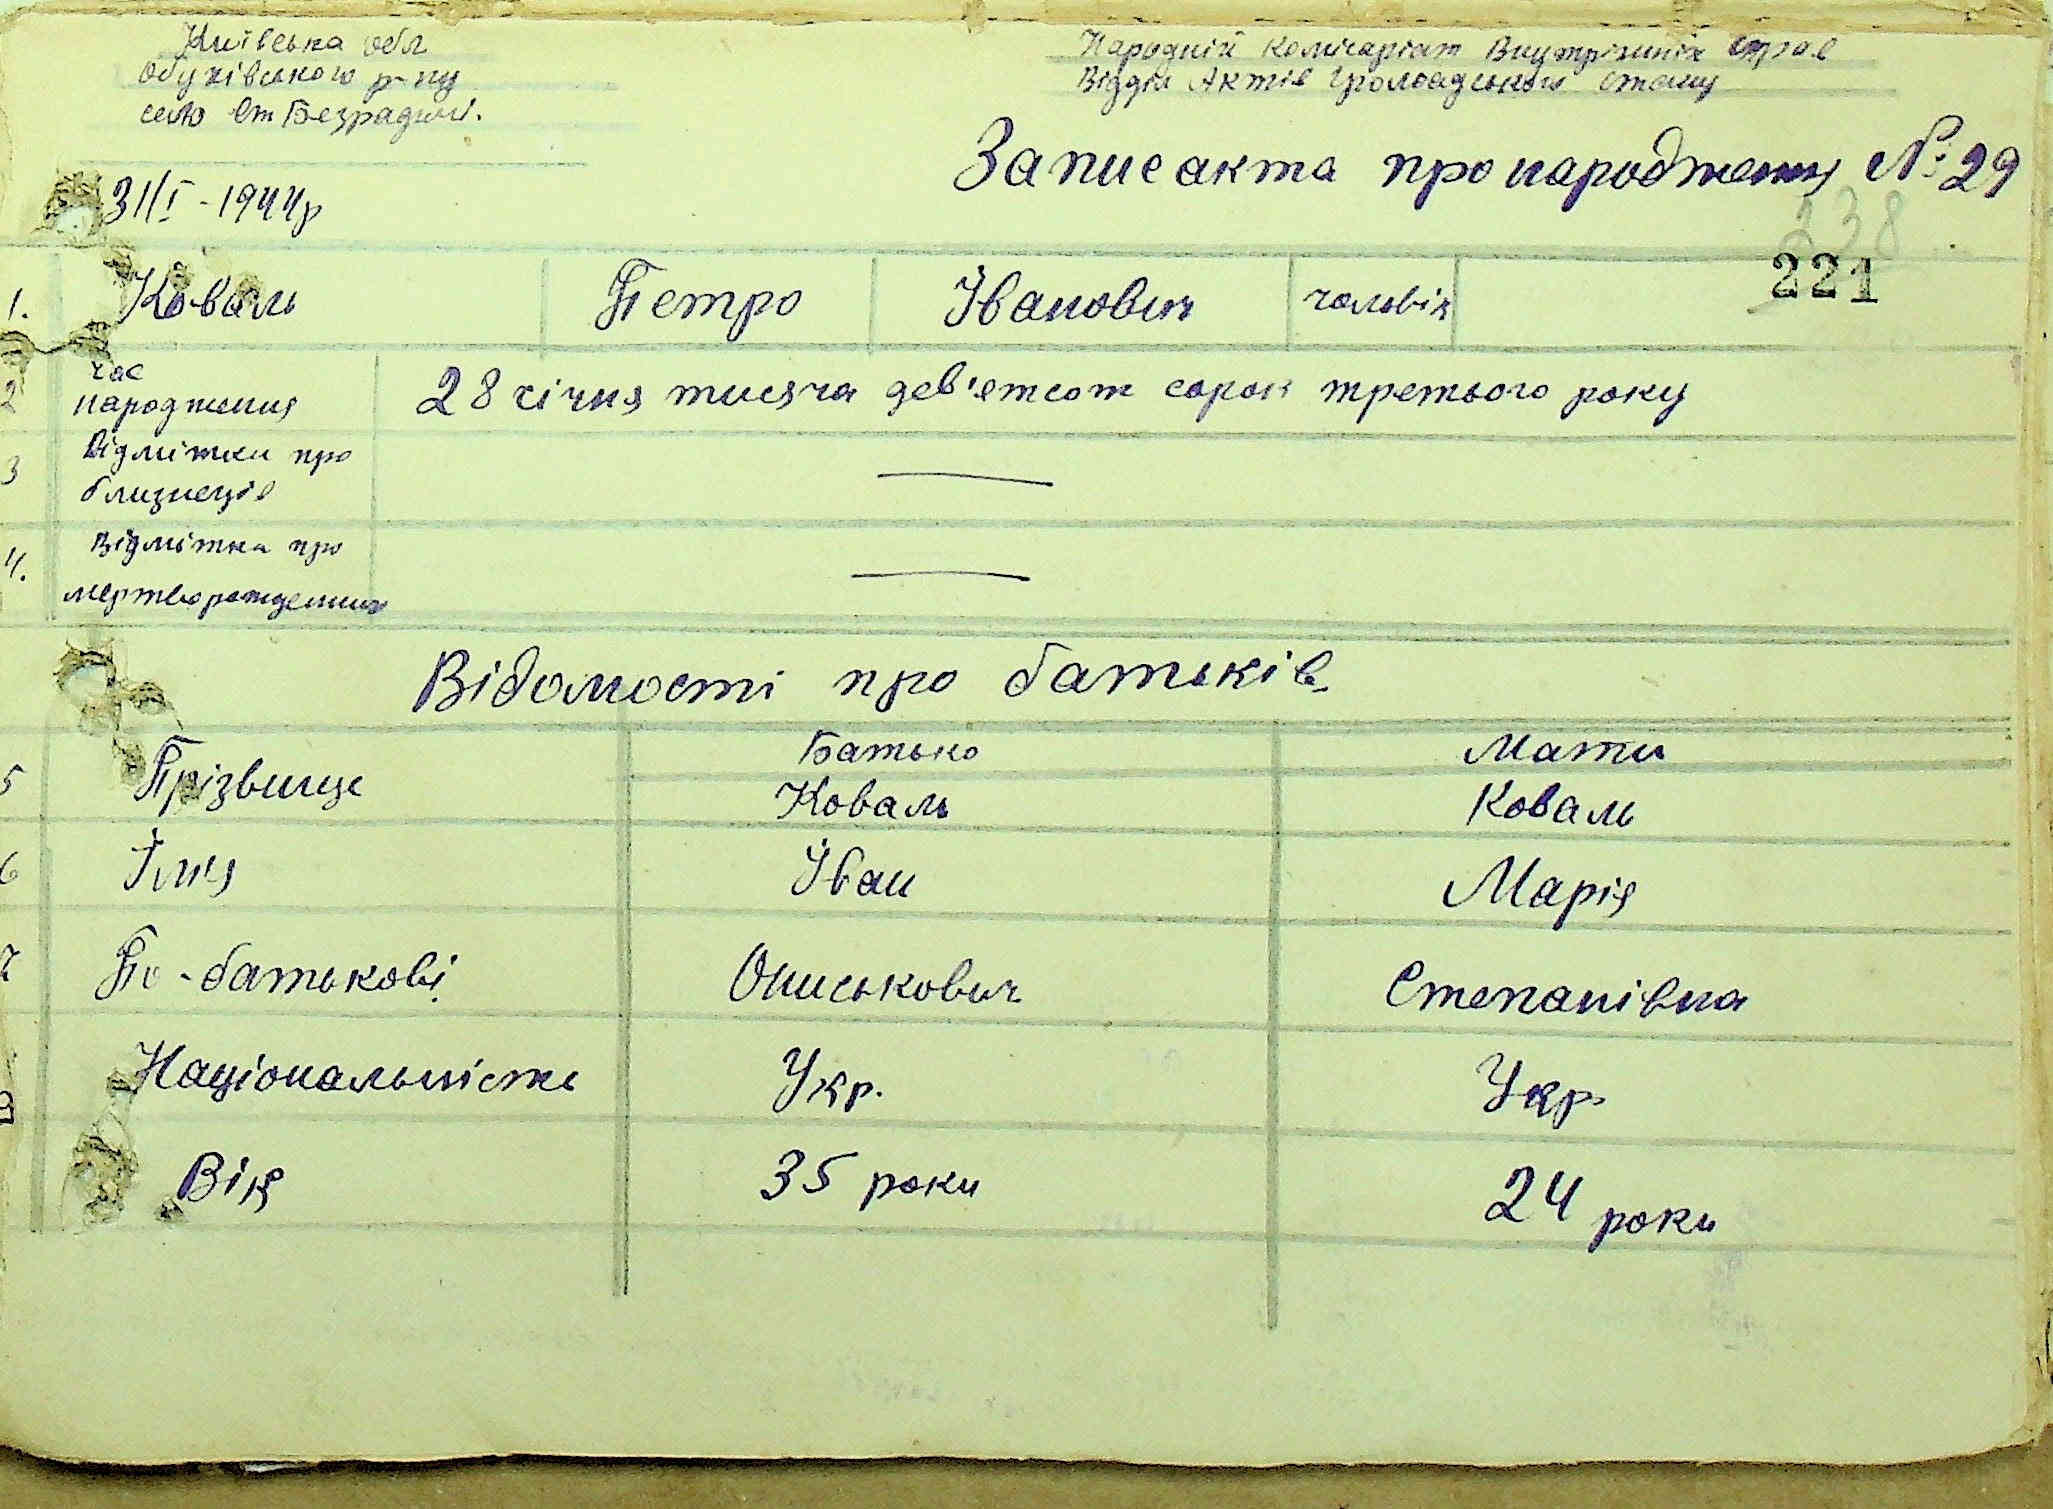 Київська обл
Обухівського р-ну
село Ст Безрадичі.
Народній Комісаріат Внутрішніх справ
Відділ Актів Громадського стану
Запис акта про народження №29
31/I - 1944р
238
221
1. Коваль Петро Іванович чоловік
2 час народження 28 січня тисяча дев'ятсот сорок третього року
3 Відмітки про близнеців —
4. Відмітка про мертворожденних —
Відомості про батьків
Батько Мати
5 Прізвище Коваль Коваль
6 Імя Іван Марія
7 По-батькові Ониськович Степанівна
8 Національність Укр. Укр.
Вік 35 роки 24 роки